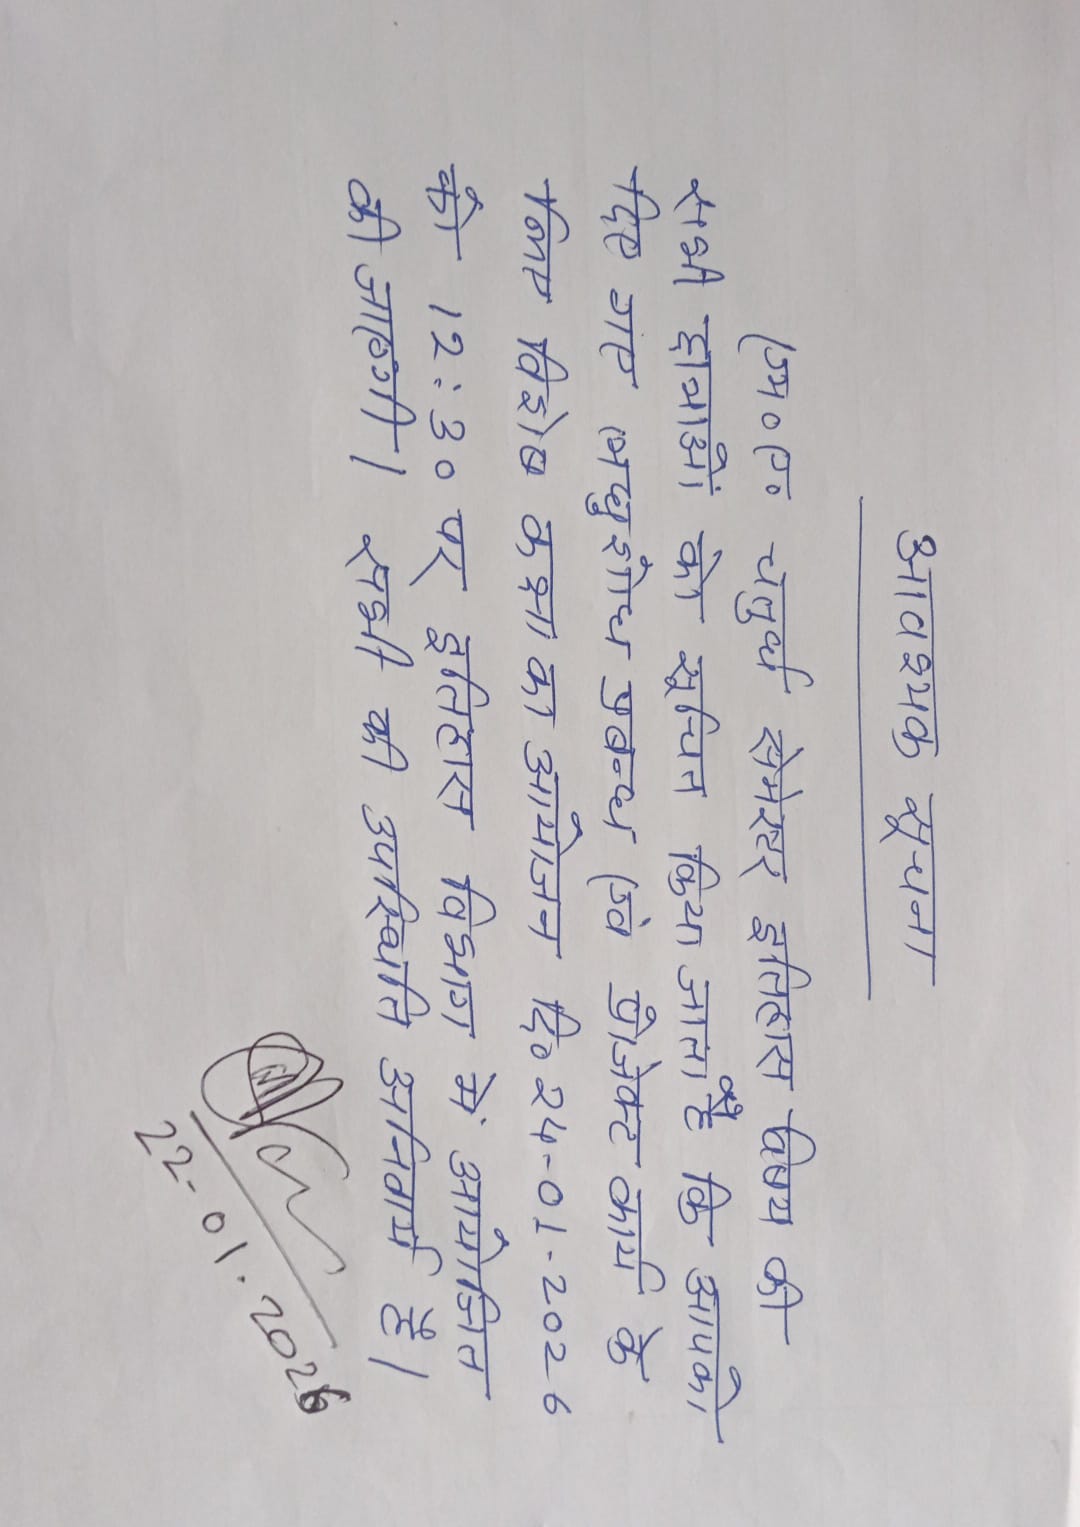 आवश्यक सूचना
एम०ए० चतुर्थ सेमेस्टर इतिहास विषय की
सभी छात्राओं को सूचित किया जाता है कि आपको
दिए गए लघु शोध प्रबन्ध एवं प्रोजेक्ट कार्य के
लिए विशेष कक्षा का आयोजन दि० 24-01-2026
को 12:30 पर इतिहास विभाग में आयोजित
की जाएगी। सभी की उपस्थिति अनिवार्य है।
22-01.2026